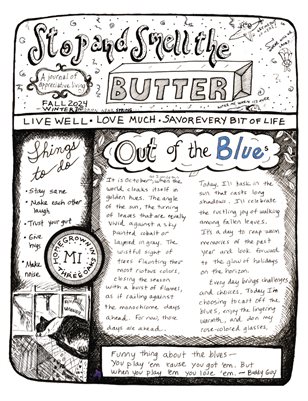 Stop and Smell the
BUTTER
A journal of
appreciative living
FALL 2024
WINTER
SPRING
LIVE WELL • LOVE MUCH • SAVOR EVERY BIT OF LIFE
Things
to do
• Stay sane
• Make each other
laugh
• Trust your gut
• Give
hugs
• Make
noise
HOMEGROWN IN
MI
THREE OAKS
Out of the Blues
It is October when the
world cloaks itself in
golden hues. The angle
of the sun, the turning
of leaves that are equally
vivid against a sky
painted cobalt or
layered in gray. The
wistful sight of
trees flaunting their
most riotous colors,
closing the season
with a burst of flames,
as if railing against
the monochrome days
ahead. For now, those
days are ahead.
Today, I'll bask in the
sun that casts long
shadows. I'll celebrate
the rustling joy of walking
among fallen leaves.
It's a day to reap warm
memories of the past
year and look forward
to the glow of holidays
on the horizon.
Every day brings challenges
and choices. Today I'm
choosing to cast off the
blues, enjoy the lingering
warmth, and don my
rose-colored glasses.
Funny thing about the blues—
You play 'em 'cause you got 'em. But
when you play 'em you lose 'em. — Buddy Guy